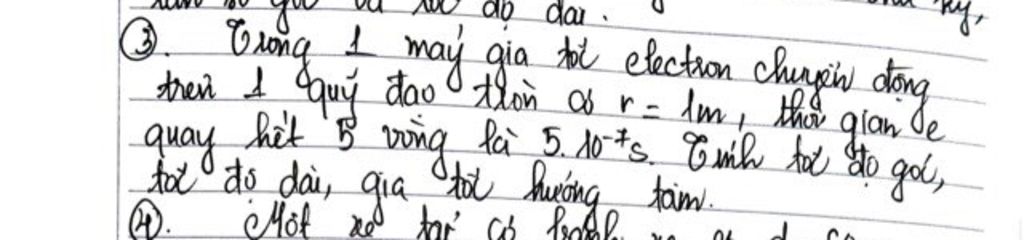 độ dài.
③. Trong 1 máy gia tốc electron chuyển động
trên 1 quỹ đạo tròn có r = 1m, thời gian e
quay hết 5 vòng là 5.10⁻⁷s. Tính tốc độ góc,
tốc độ dài, gia tốc hướng tâm.
④. Một xe tải có